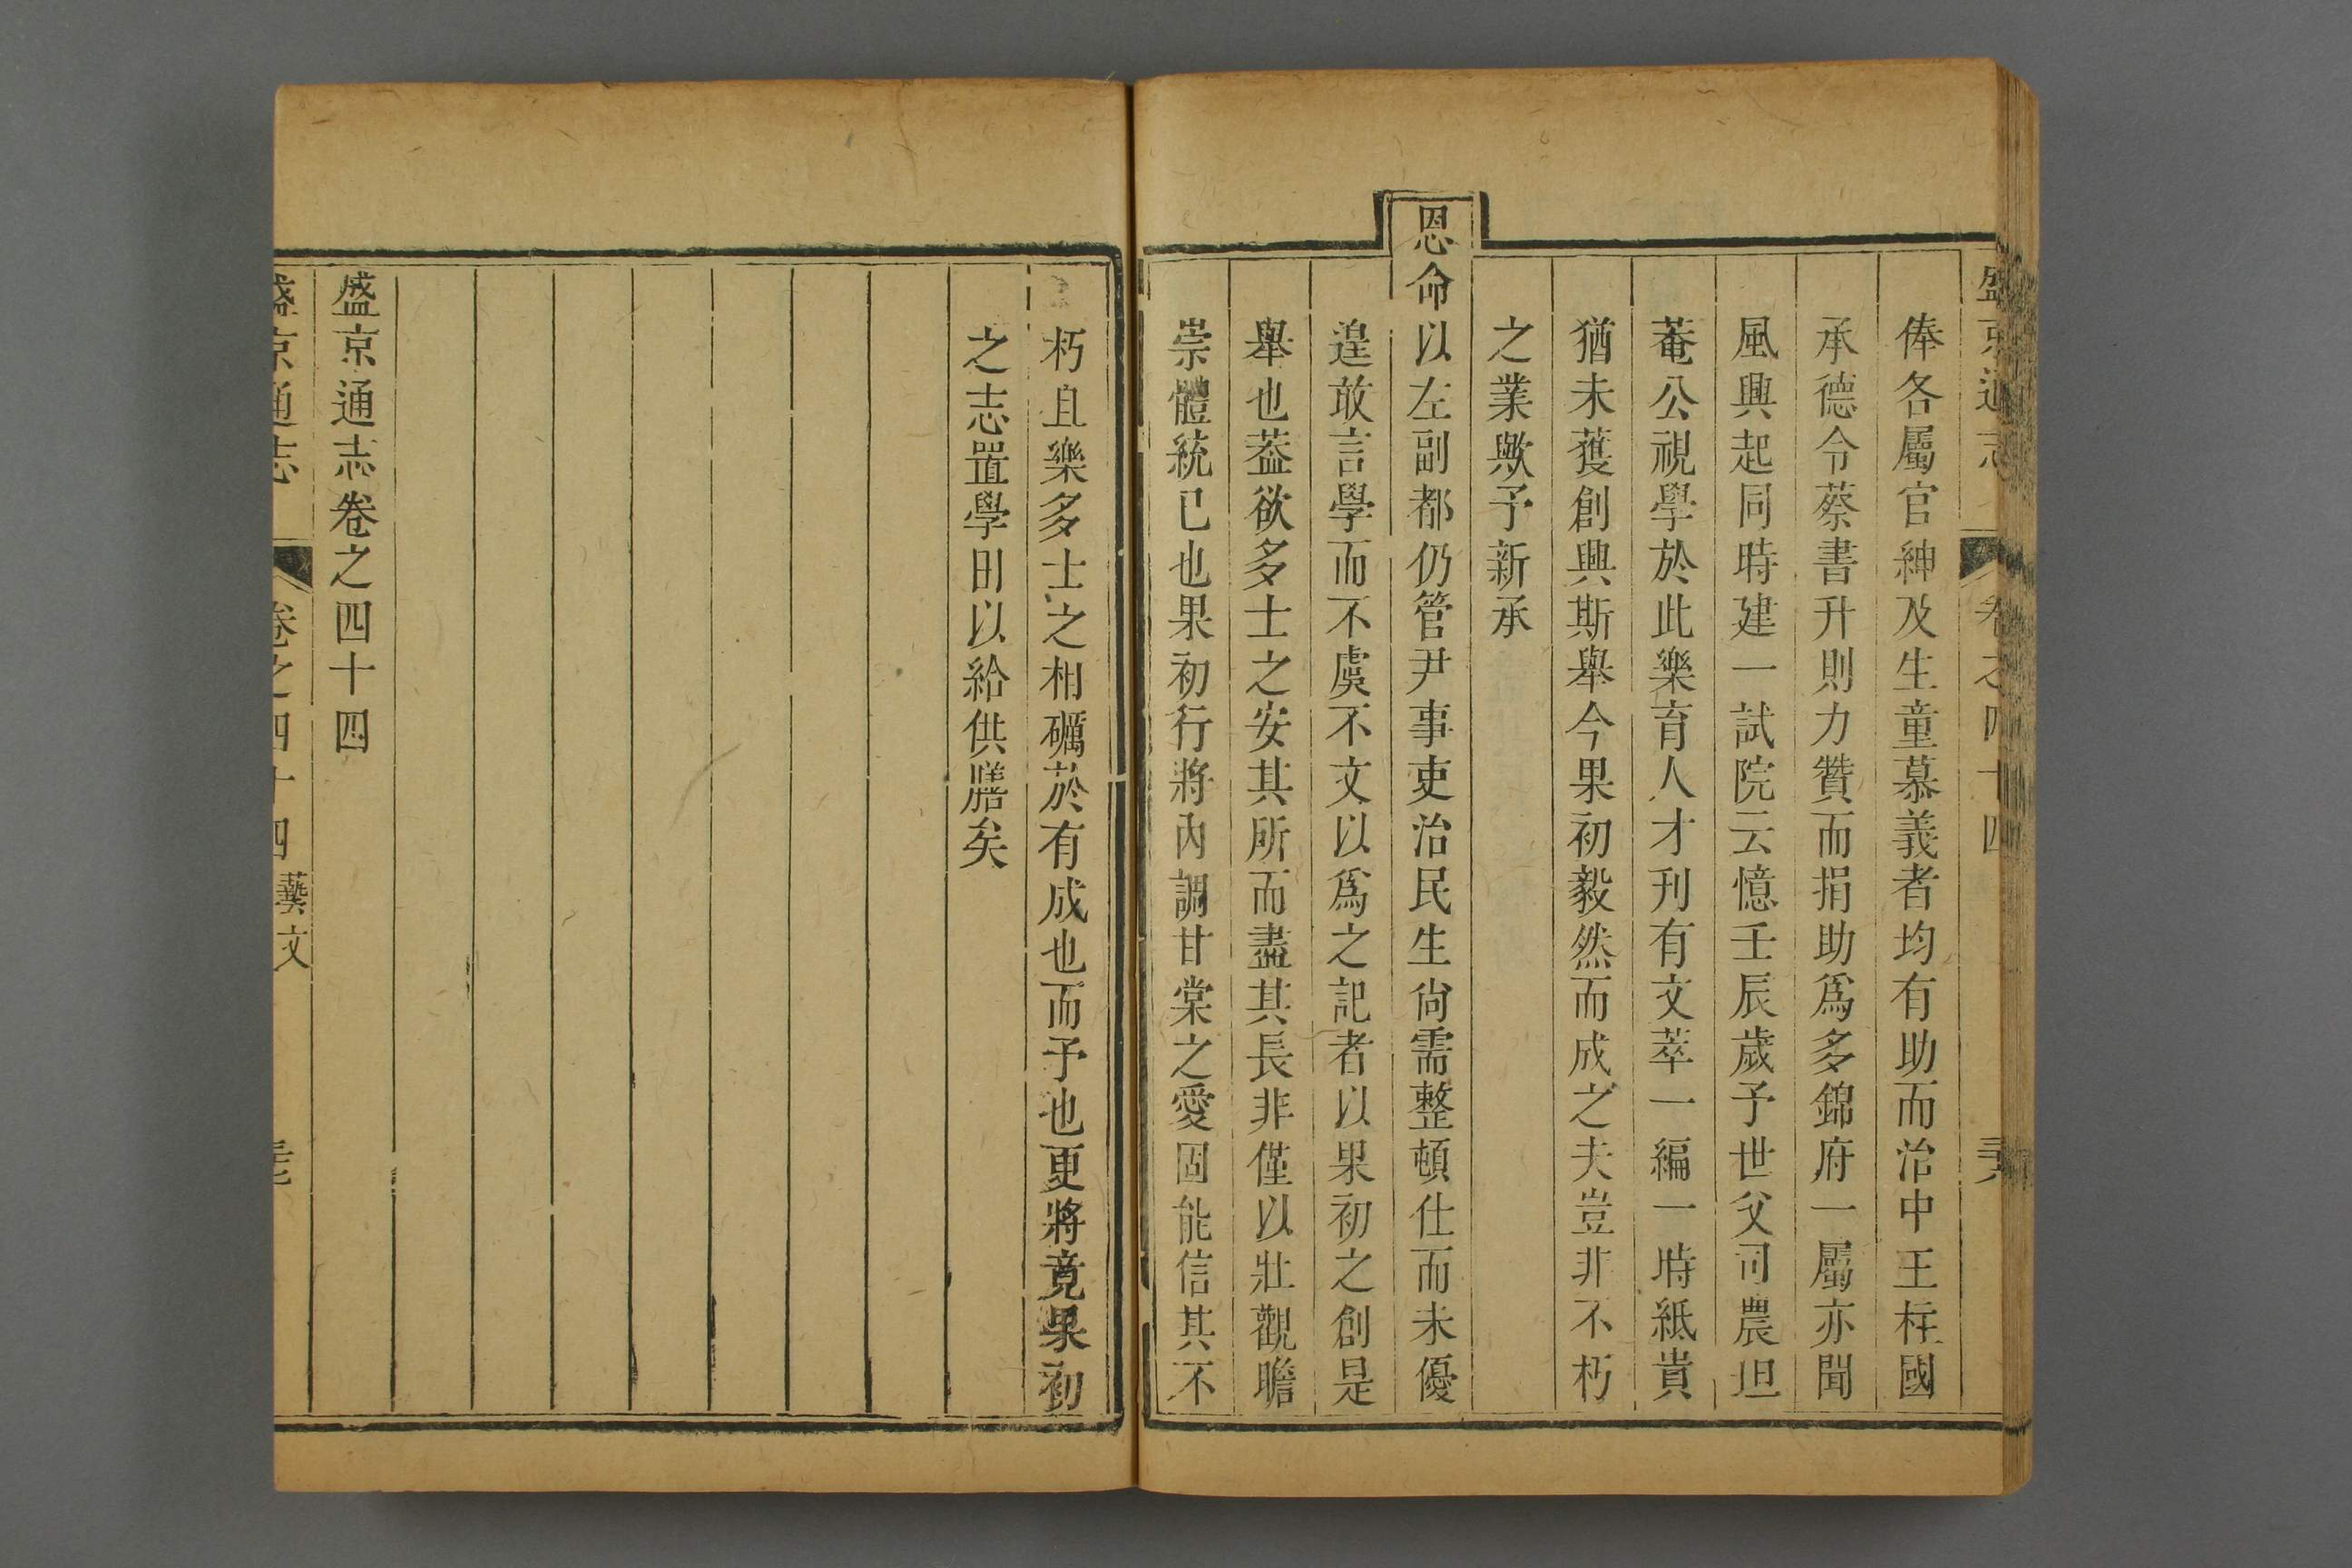 盛京通志 卷之四十四
俸各屬官紳及生童慕義者均有助而治中王柱國
承德令蔡書升則力贊而捐助爲多錦府一屬亦聞
風興起同時建一試院云憶壬辰歲予世父司農坦
菴公視學於此樂育人才刊有文萃一編一時紙貴
猶未獲創興斯舉今果初毅然而成之夫豈非不朽
之業歟予新承
恩命以左副都仍管尹事吏治民生尙需整頓仕而未優
遑敢言學而不虞不文以爲之記者以果初之創是
舉也葢欲多士之安其所而盡其長非僅以壯觀瞻
崇體統已也果初行將內調甘棠之愛固能信其不
朽且樂多士之相礪於有成也而予也更將竟果初
之志置學田以給供膳矣
盛京通志卷之四十四
盛京通志 卷之四十四 藝文